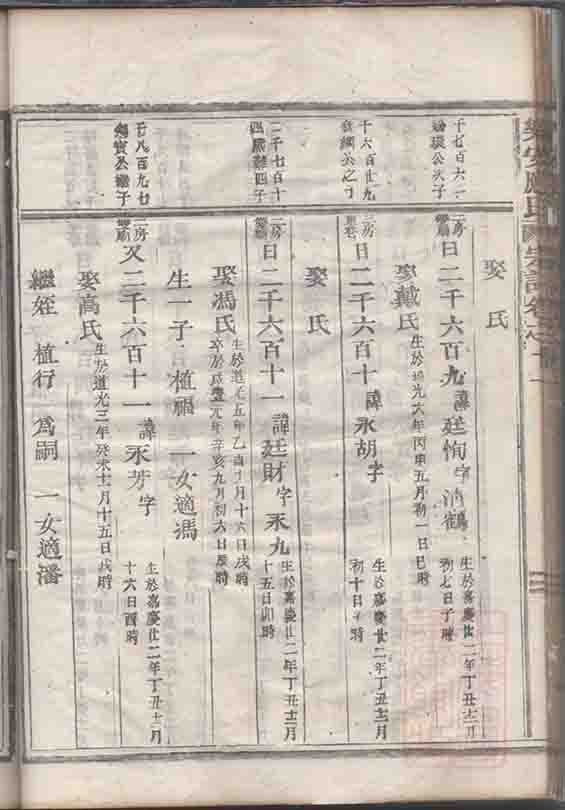 樂安應氏 宗譜卷之十一
娶 氏
千七百六
公次子
二房 曰 二千六百九 諱 廷恂 字 鶴 生於嘉慶廿二年丁丑十二月
初七日子時
娶戴氏 生於道光六年丙申五月初一日巳時
十六百廿九
公之子
三房 曰 二千六百十 諱 永胡 字 生於嘉慶廿二年丁丑十二月
初十日 時
娶 氏
二千七百十
四子
二房 曰 二千六百十一 諱 廷財 字 永九 生於嘉慶廿二年丁丑十二月
十五日卯時
娶馮氏 生於道光五年乙酉十月十六日戌時
卒於咸豐元年辛亥九月初六日辰時
生一子 植福 一女適馮
廿八百九七
寅公繼子
二房 又 二千六百十一 諱 永芳 字 生於嘉慶廿二年丁丑十二月
十六日酉時
娶高氏 生於道光三年癸未十一月十五日戌時
繼姪 植行 為嗣 一女適潘